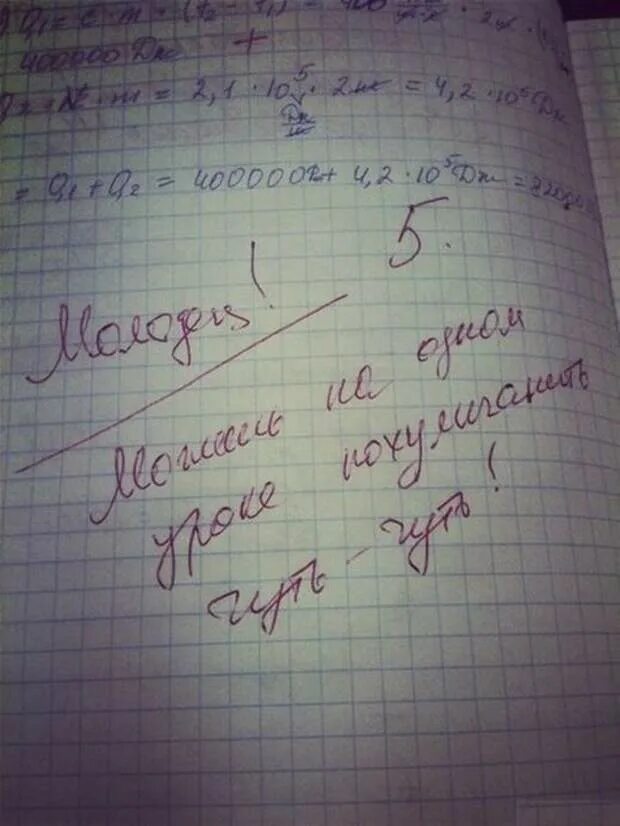 Q₁ = c · m · (t₂ - t₁) = 400 · 2кг ·
400000 Дж +
· m = 2,1 · 10⁵ Дж/кг · 2кг = 4,2 · 10⁵ Дж
= Q₁ + Q₂ = 400000 + 4,2 · 10⁵ Дж =
5.
Молодец!
Можешь на одном
уроке похулиганить
чуть-чуть!